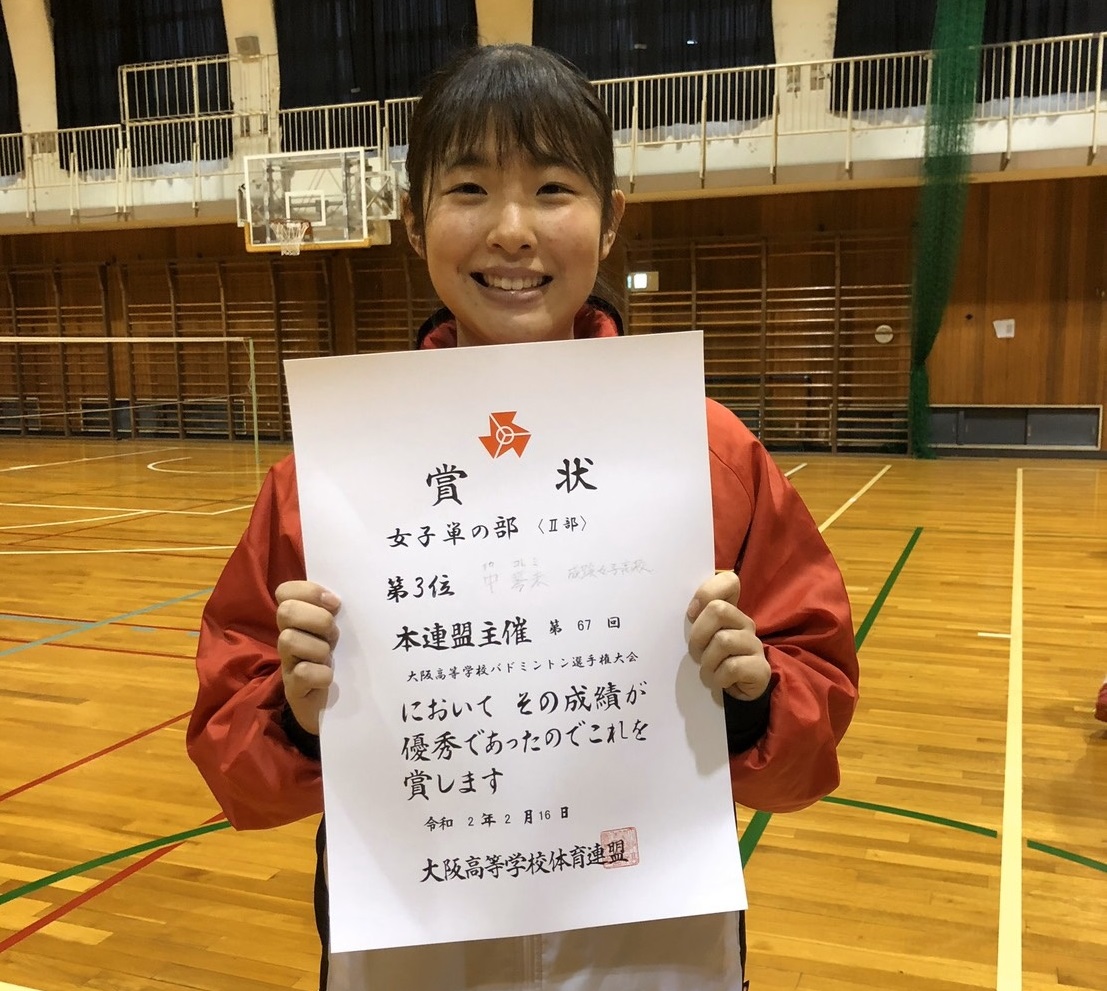 賞 状
女子単の部 〈Ⅱ部〉
第3位 中
本連盟主催 第 67 回
大阪高等学校バドミントン選手権大会
において その成績が
優秀であったのでこれを
賞します
令和 2 年 2 月 16 日
大阪高等学校体育連盟